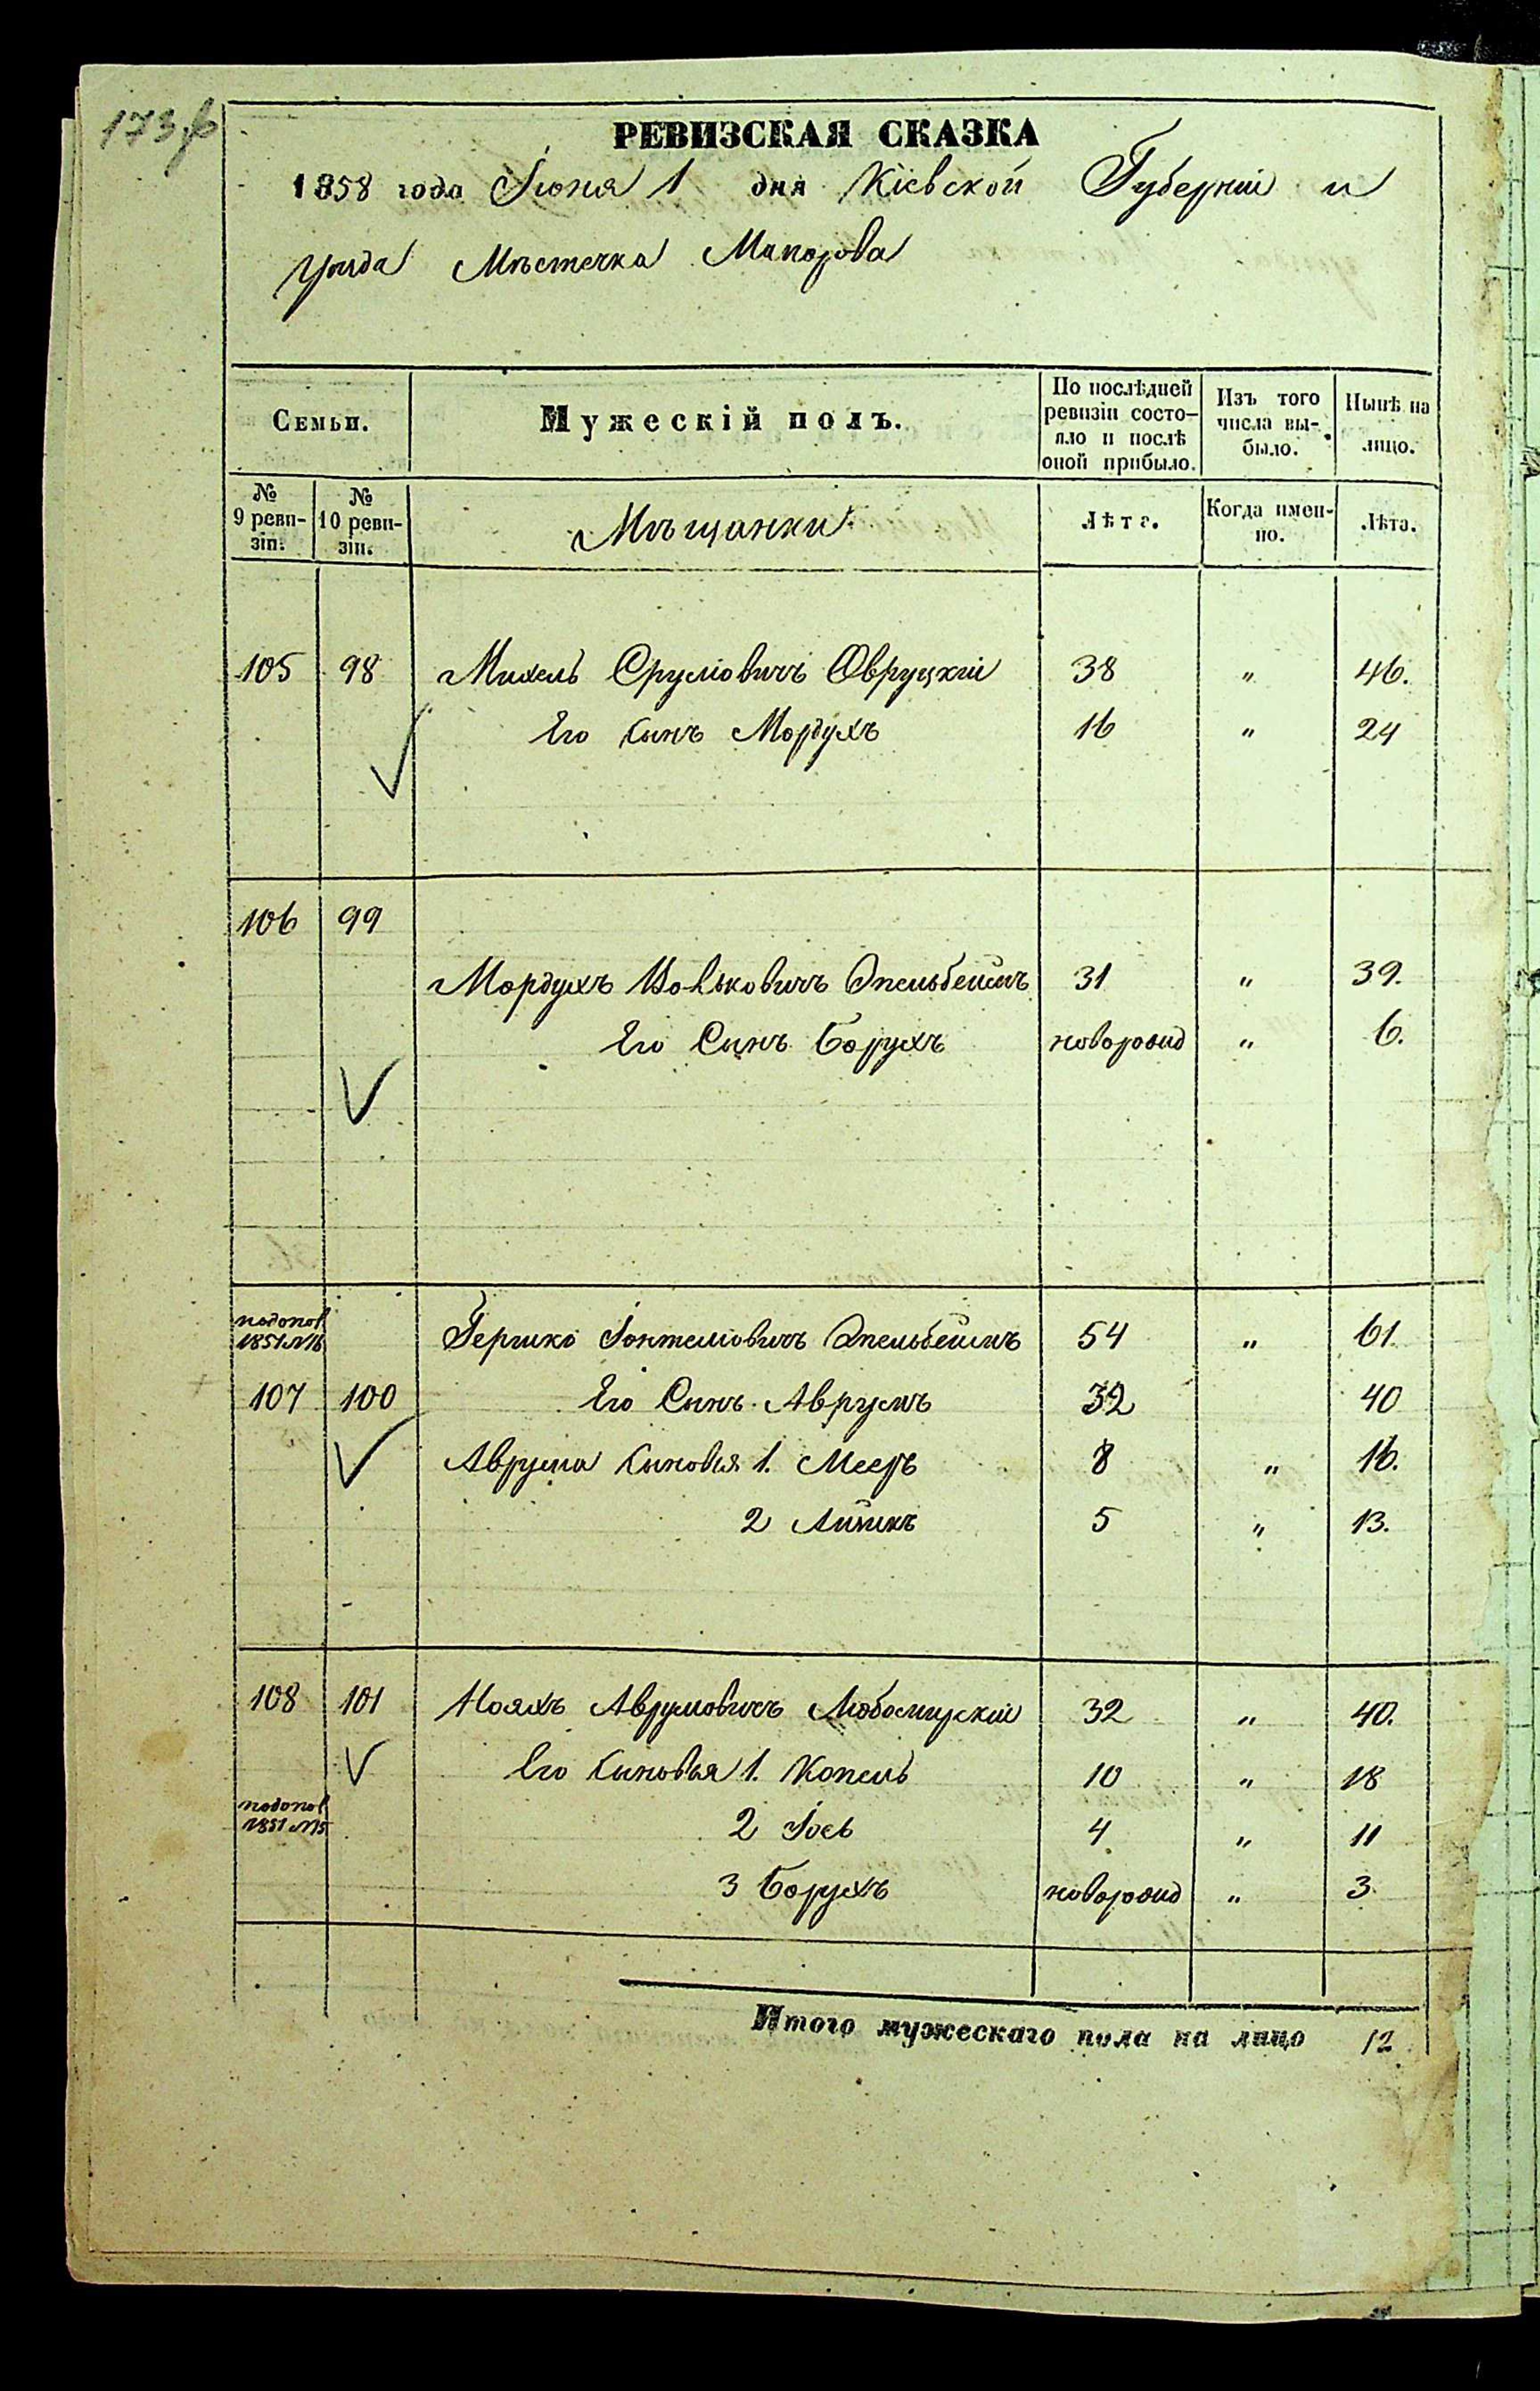 173 об
РЕВИЗСКАЯ СКАЗКА
1858 года Іюня 1 дня Кіевской Губерніи и
уѣзда Мѣстечка Макарова
Семьи.
Мужескій полъ.
По послѣдней ревизіи состояло и послѣ оной прибыло.
Изъ того числа выбыло.
Нынѣ на лицо.
№ 9 ревизіи.
№ 10 ревизіи.
Мѣщанки
Лѣта.
Когда именно.
Лѣта.
105 98 Михель Сруліовичъ Овруцкій 38 " 46.
Его сынъ Мордухъ 16 " 24
106 99
Мордухъ Вольковичъ Эпельбеймъ 31 " 39.
Его Сынъ Борухъ новорожд " 6.
подопол 1851 №16 Гершко Іонтеліовичъ Эпельбеймъ 54 " 61.
107 100 Его Сынъ Аврумъ 32 40
Аврума сыновья 1. Мееръ 8 " 16.
2 Айзикъ 5 " 13.
108 101 Нояхъ Аврумовичъ Любомирскій 32 " 40.
Его сыновья 1. Копель 10 " 18
подопол 1851 №5 2 Іось 4 " 11
3 Борухъ новорожд " 3.
Итого мужескаго пола на лицо 12